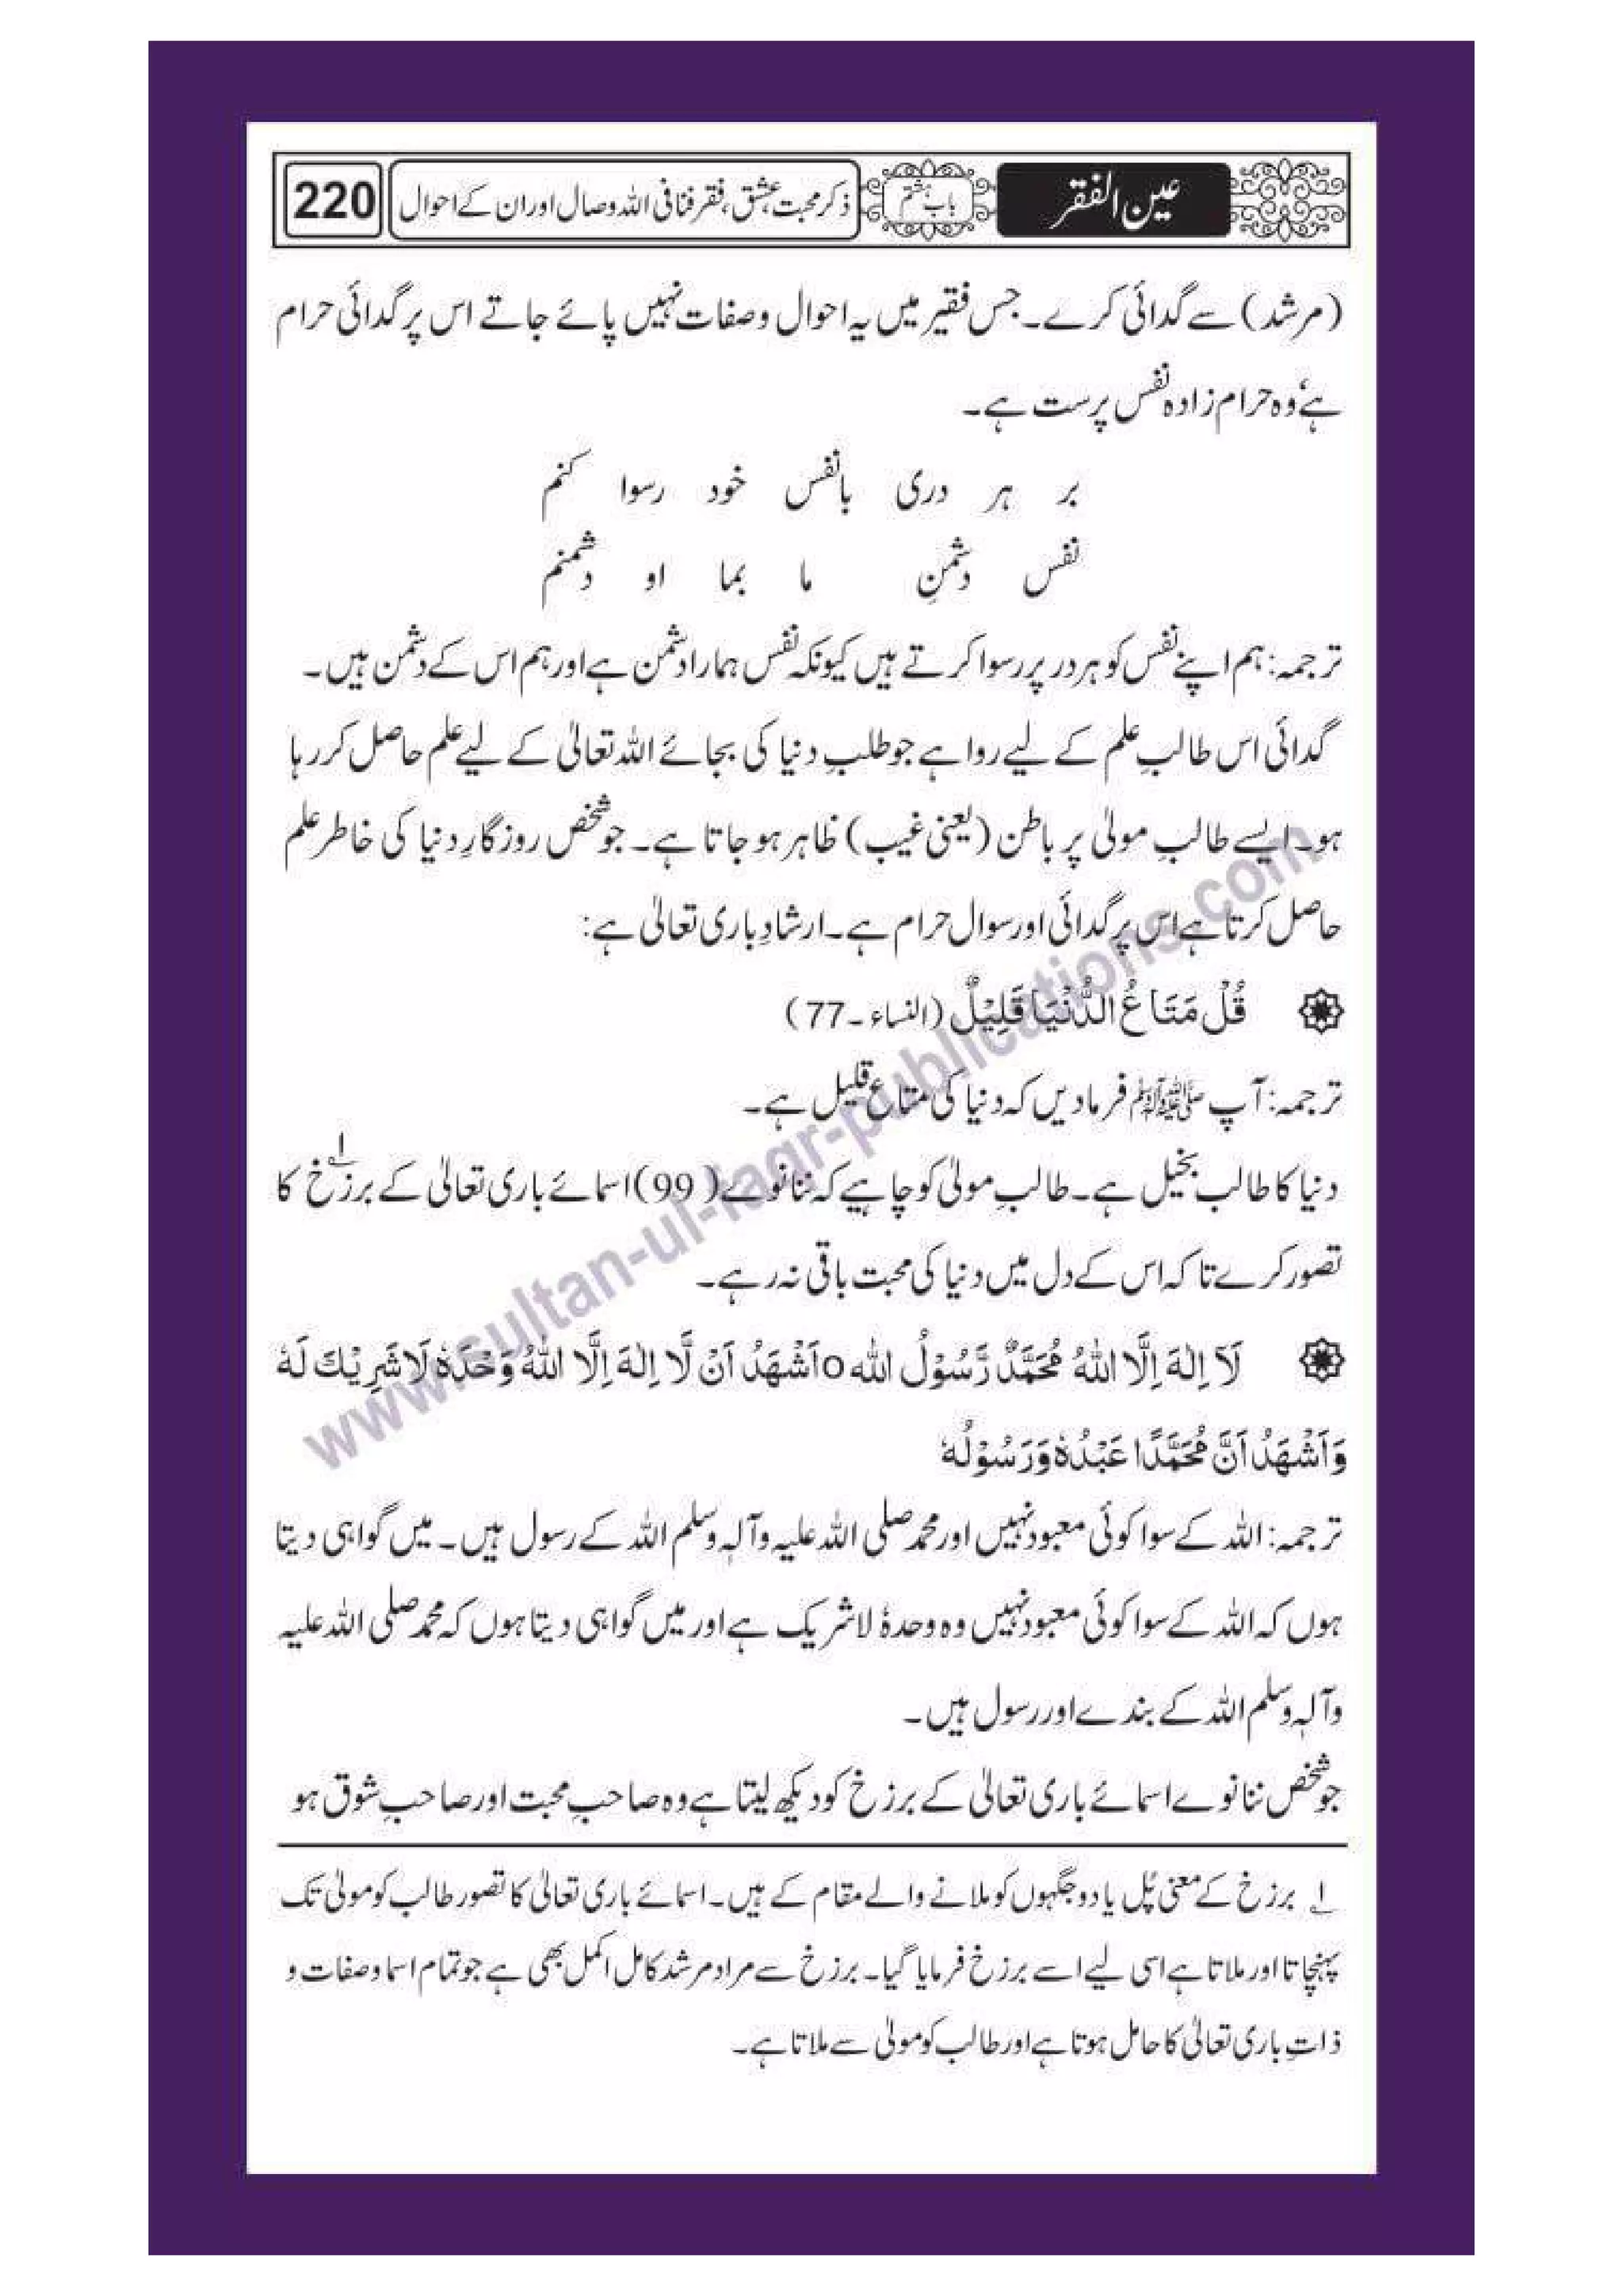 عین الفقر باب ہشتم ذکر محبت، عشق، فقر فنا فی اللہ وصال اور ان کے احوال 220
(مرشد) سے گدائی کرے۔ جس فقیر میں یہ احوال و صفات نہیں پائے جاتے اس پر گدائی حرام
ہے‘ وہ حرام زادہ نفس پرست ہے۔
بر ہر دری بانفس خود رسوا کنم
نفس دشمنِ ما بما او دشمنم
ترجمہ: ہم اپنے نفس کو ہر در پر رسوا کرتے ہیں کیونکہ نفس ہمارا دشمن ہے اور ہم اس کے دشمن ہیں۔
گدائی اس طالبِ علم کے لیے روا ہے جو طلبِ دنیا کی بجائے اللہ تعالیٰ کے لیے علم حاصل کر رہا
ہو۔ ایسے طالبِ مولیٰ پر باطن (یعنی غیب) ظاہر ہو جاتا ہے۔ جو شخص روزگارِ دنیا کی خاطر علم
حاصل کرتا ہے اس پر گدائی اور سوال حرام ہے۔ ارشادِ باری تعالیٰ ہے:
قُلْ مَتَاعُ الدُّنْیَا قَلِیْلٌ (النساء۔77)
ترجمہ: آپ ﷺ فرما دیں کہ دنیا کی متاع قلیل ہے۔
دنیا کا طالب بخیل ہے۔ طالبِ مولیٰ کو چاہیے کہ ننانوے (99) اسمائے باری تعالیٰ کے برزخ۱ کا
تصور کرے تاکہ اس کے دل میں دنیا کی محبت باقی نہ رہے۔
لَآ اِلٰہَ اِلَّا اللّٰہُ مُحَمَّدٌ رَّسُوْلُ اللہ o اَشْھَدُ اَنْ لَّا اِلٰہَ اِلَّا اللّٰہُ وَحْدَہٗ لَا شَرِیْكَ لَہٗ
وَ اَشْھَدُ اَنَّ مُحَمَّدًا عَبْدُہٗ وَ رَسُوْلُہٗ
ترجمہ: اللہ کے سوا کوئی معبود نہیں اور محمد صلی اللہ علیہ وآلہٖ وسلم اللہ کے رسول ہیں۔ میں گواہی دیتا
ہوں کہ اللہ کے سوا کوئی معبود نہیں وہ وحدہٗ لاشریک ہے اور میں گواہی دیتا ہوں کہ محمد صلی اللہ علیہ
وآلہٖ وسلم اللہ کے بندے اور رسول ہیں۔
جو شخص ننانوے اسمائے باری تعالیٰ کے برزخ کو دیکھ لیتا ہے وہ صاحبِ محبت اور صاحبِ شوق ہو
۱ برزخ کے معنی پُل یا دو جگہوں کو ملانے والے مقام کے ہیں۔ اسمائے باری تعالیٰ کا تصور طالب کو مولیٰ تک
پہنچاتا اور ملاتا ہے اسی لیے اسے برزخ فرمایا گیا۔ برزخ سے مراد مرشد کامل اکمل بھی ہے جو تمام اسما و صفات و
ذاتِ باری تعالیٰ کا حامل ہوتا ہے اور طالب کو مولیٰ سے ملاتا ہے۔
www.sultan-ul-faqr-publications.com